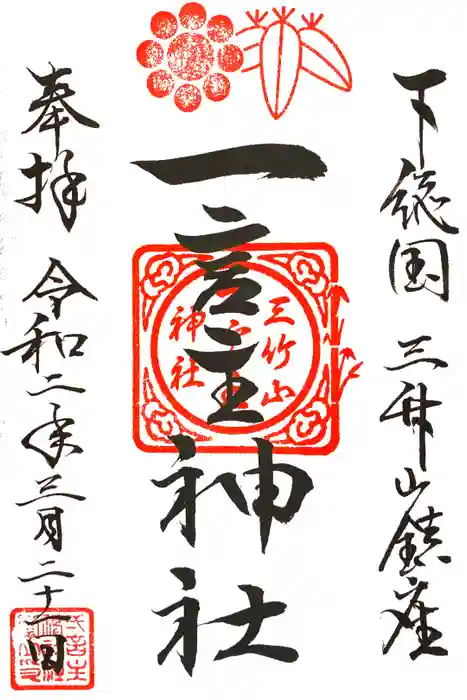 下総国 三竹山鎮座
一言主神社
三竹山
神社
奉拝 令和二年三月二十一日